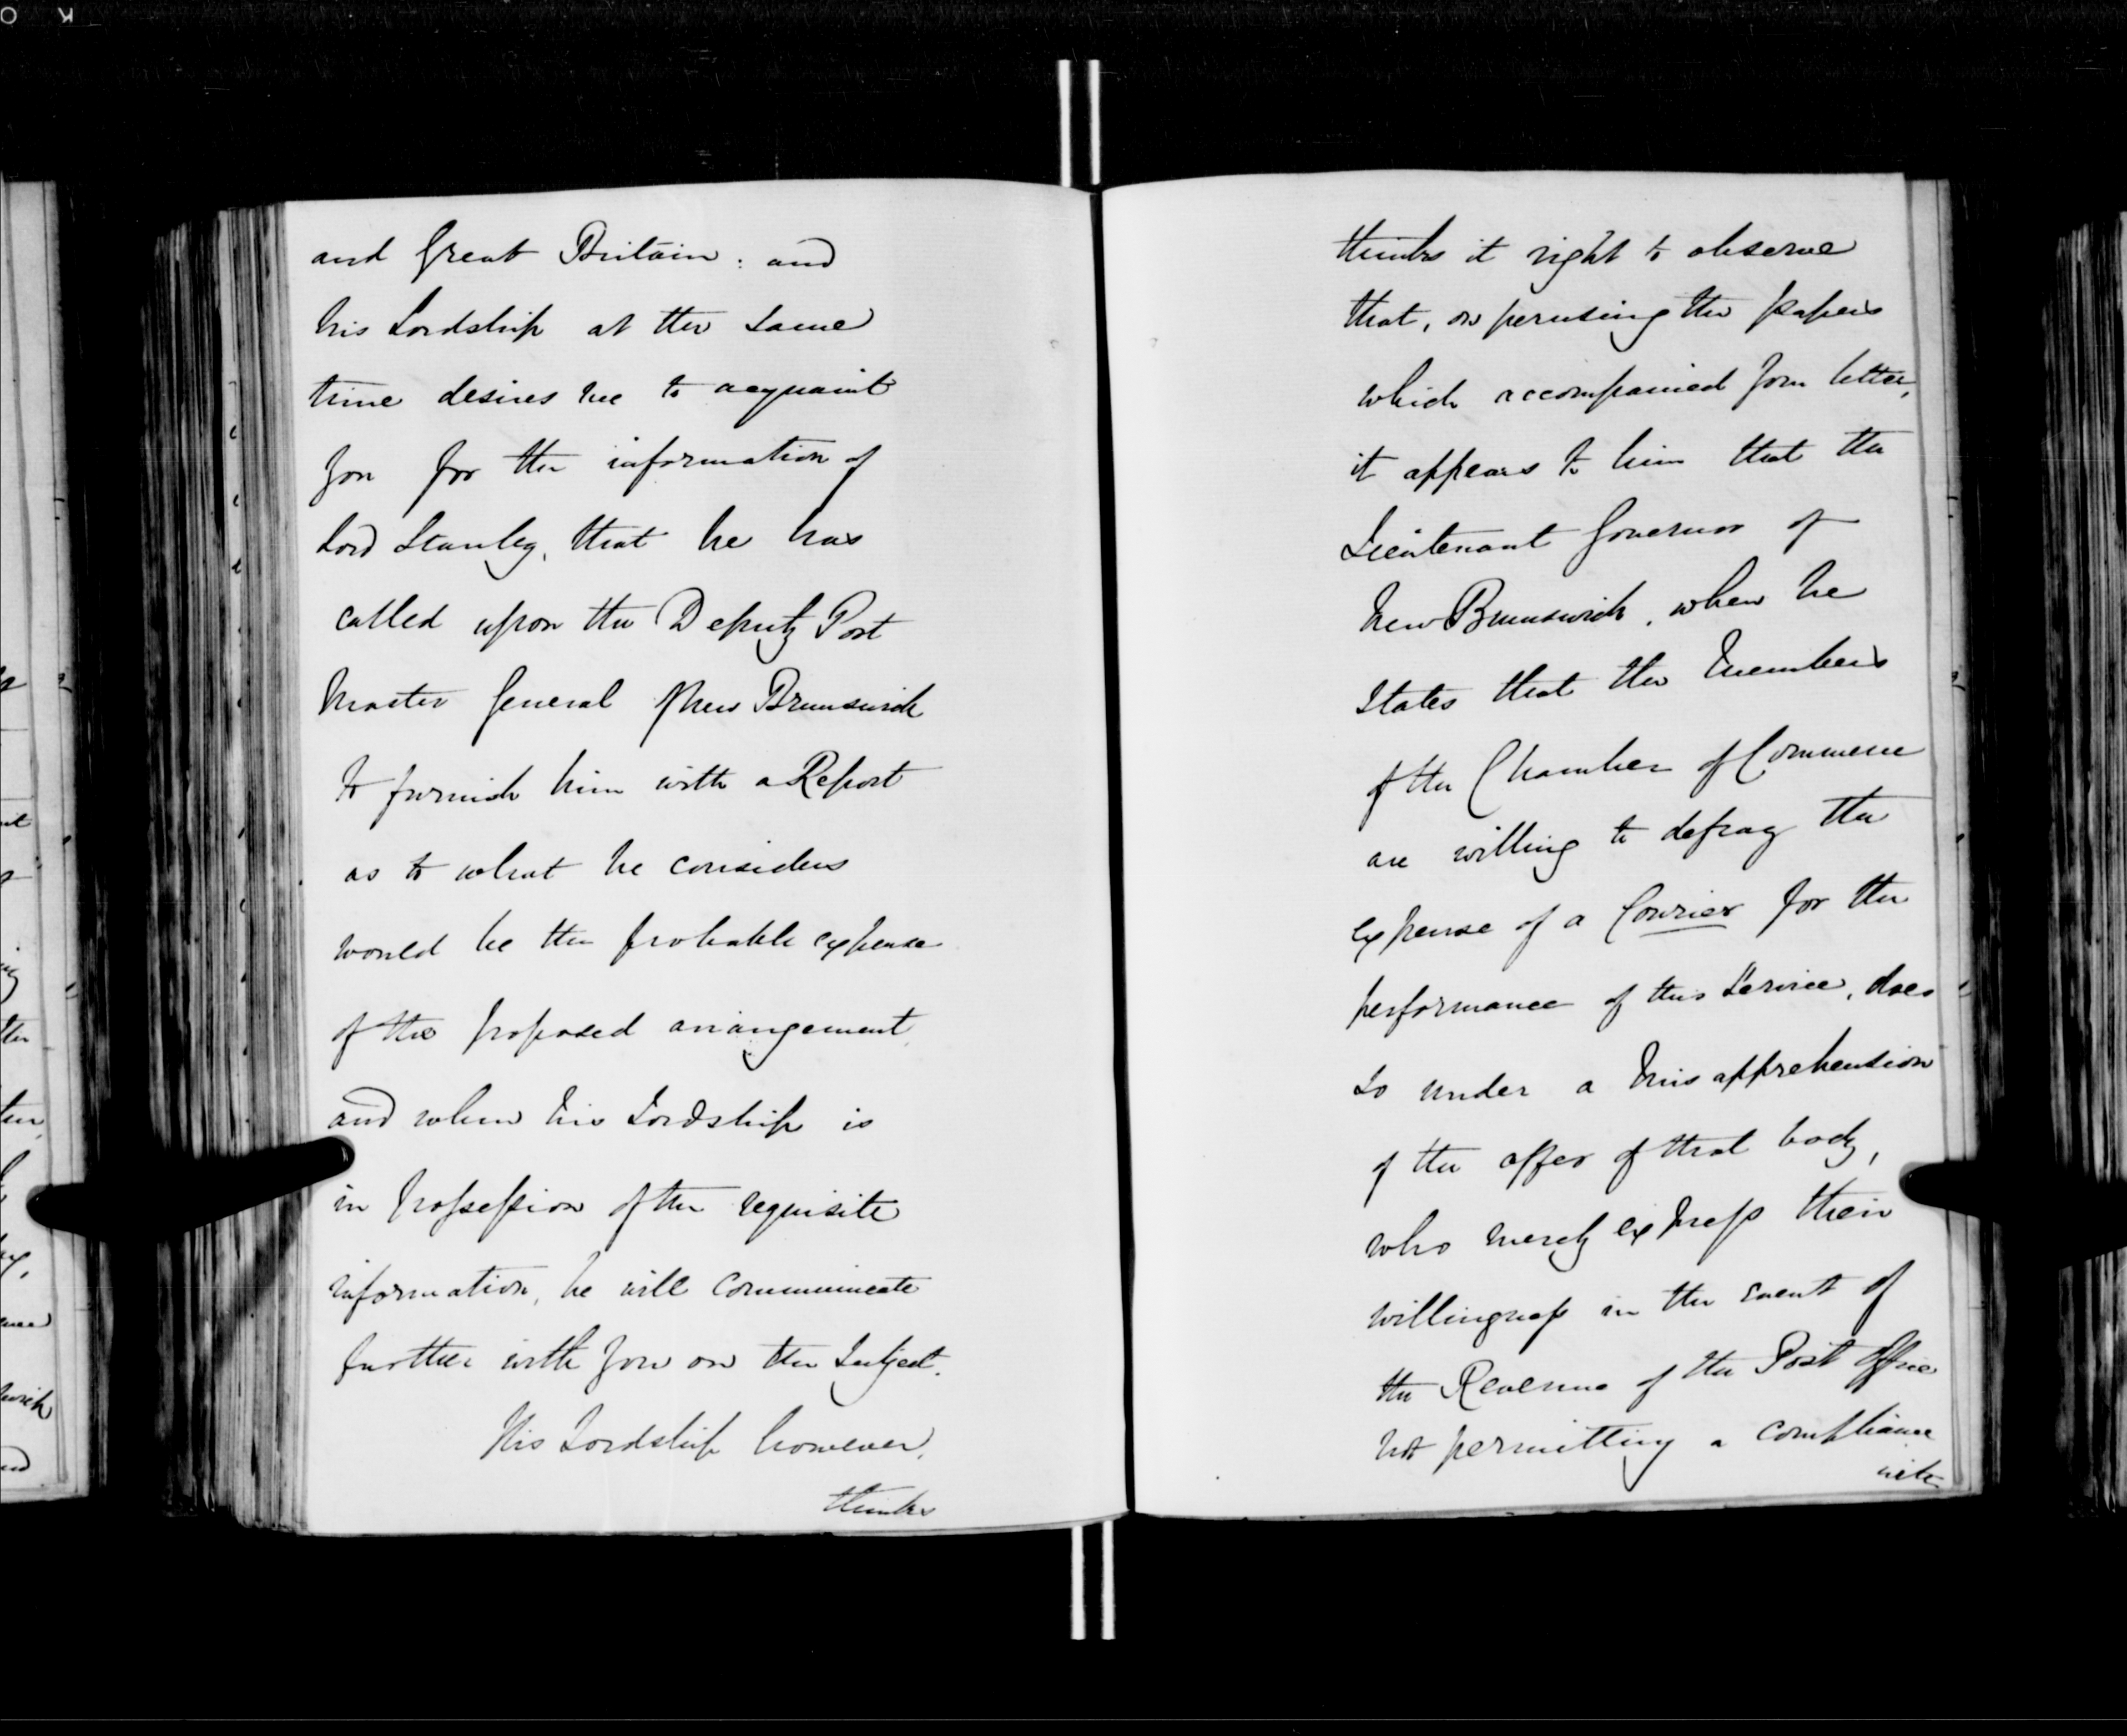 and Great Britain : and
his Lordship at the same
time desires me to acquaint
you for the information of
Lord Stanley, that he has
called upon the Deputy Post
Master General of New Brunswick
to furnish him with a Report
as to what he considers
would be the probable expense
of the proposed arrangement,
and when his Lordship is
in possession of the requisite
information, he will communicate
further with you on the subject.
His Lordship however,
thinks
thinks it right to observe
that, on perusing the papers
which accompanied your letter,
it appears to him that the
Lieutenant Governor of
New Brunswick, when he
states that the Members
of the Chamber of Commerce
are willing to defray the
expense of a Courier for the
performance of this Service, does
so under a misapprehension
of the offer of that body,
who merely express their
willingness in the event of
the Revenue of the Post Office
not permitting a compliance
with